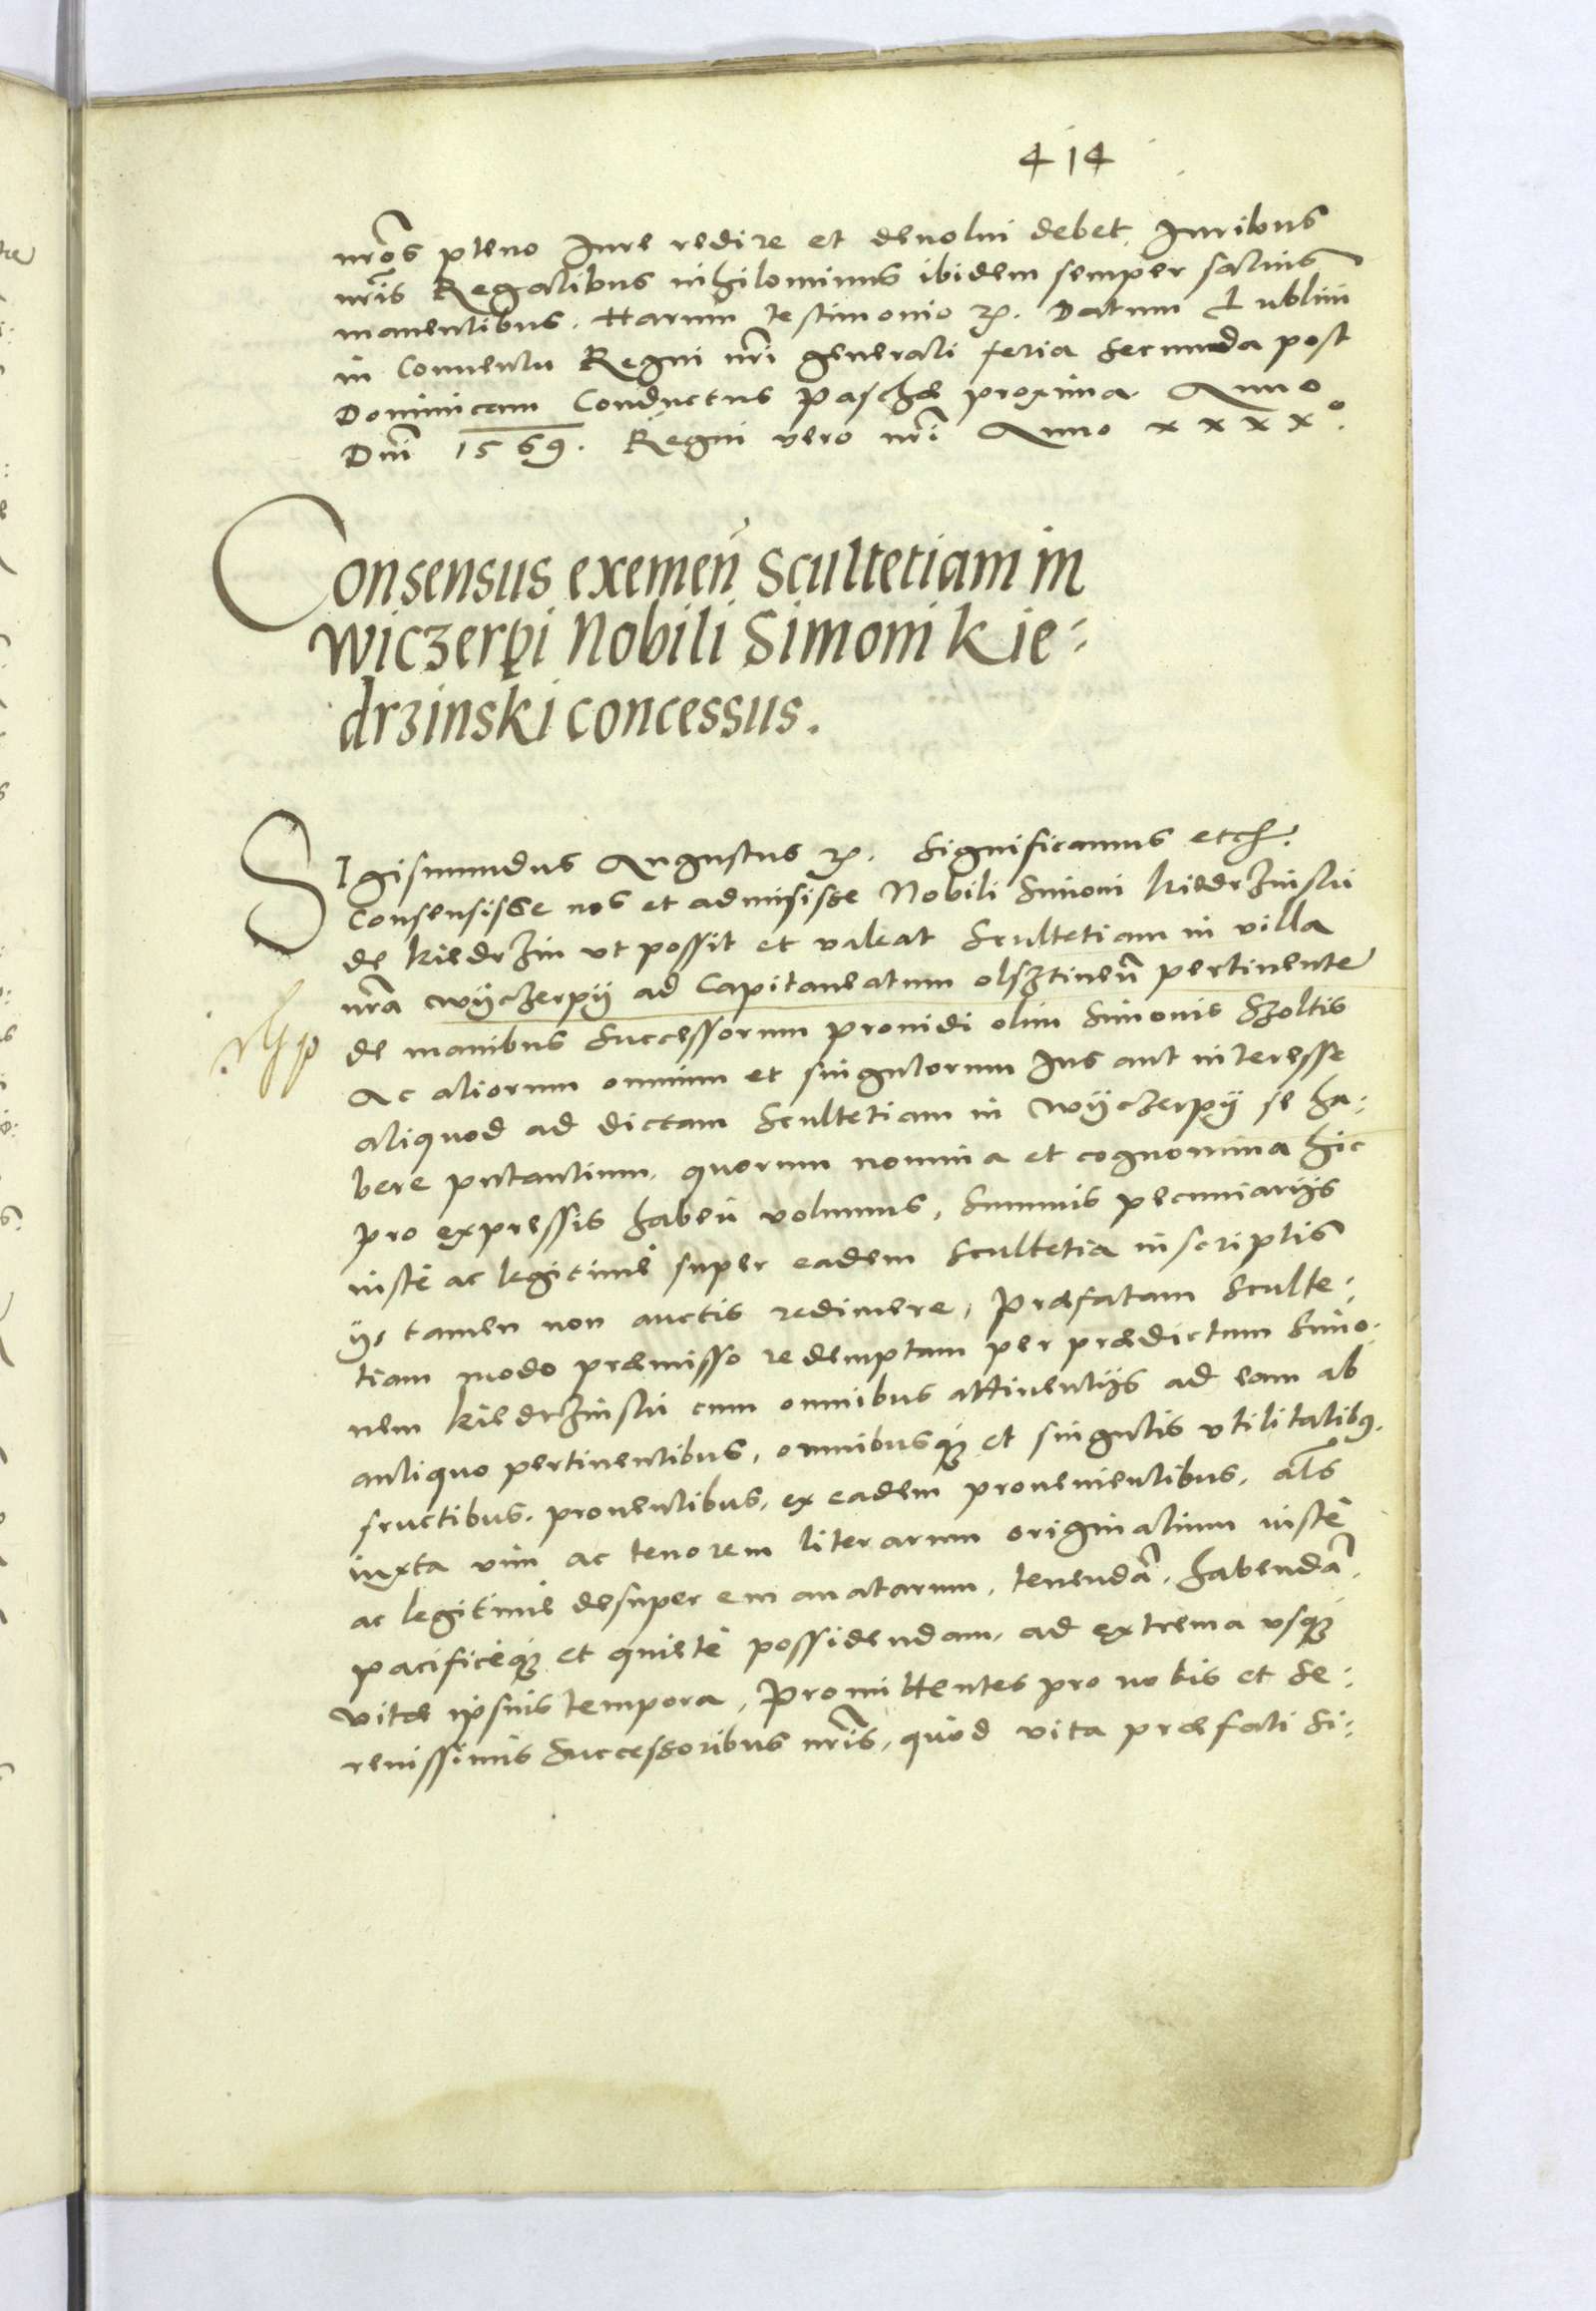 414
nr̃os pleno Iure redire et deuolui debet, Iuribus
nr̃is Regalibus nihilominus ibidem semper saluis
manentibus. Harum testimonio etc. Datum Lublini
in Conuentu Regni nr̃i generali feria secunda post
Dominicam Conductus Paschæ proxima. Anno
Dñi 1569. Regni vero nr̃i Anno xxxx°.
Consensus exemeñ Scultetiam in
Wiczerpi Nobili Simoni Kie=
drzinski concessus.
SIgismundus Augustus etc. Significamus etc.
Consensisse nos et admisisse Nobili Simoni Kiedrzinski
de Kiedrzin vt possit et valeat Scultetiam in villa
nr̃a Wyczerpy ad Capitaneatum olsztineñ pertinente
de manibus Successorum prouidi olim Simonis Szoltis
Ac aliorum omnium et singulorum Ius aut interesse
aliquod ad dictam Scultetiam in Wyczerpy se ha=
bere putantium, quorum nomina et cognomina hic
pro expressis haberi volumus, Summis pecuniarijs
iustè ac legitimè super eadem Scultetia inscriptis
ijs tamen non auctis redimere, Præfatam Sculte=
tiam modo præmisso redemptam per prædictum Simo=
nem Kiedrzinski cum omnibus attinentijs ad eam ab
antiquo pertinentibus, omnibusq3 et singulis vtilitatib9.
fructibus, prouentibus, ex eadem prouenientibus, al̃s
iuxta vim ac tenorem literarum originalium iustè
ac legitimè desuper emanatarum, tenendã, habendã,
pacificèq3 et quietè possidendam, ad extrema vsq3
vitæ ipsius tempora, Promittentes pro nobis et Se=
renissimis Successoribus nr̃is, quòd vita præfati Si=